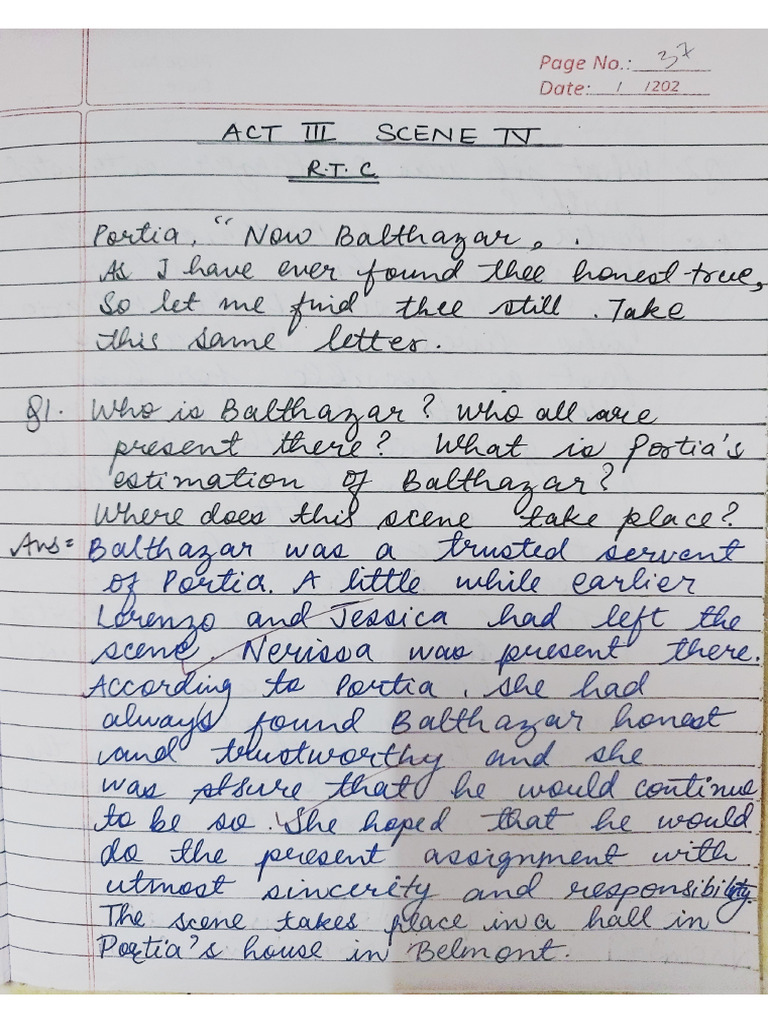 Page No.: 37
Date: / /202
ACT III SCENE IV
R.T.C
Portia, "Now Balthazar,
As I have ever found thee honest-true,
So let me find thee still. Take
this same letter.
Q1. Who is Balthazar? Who all are
present there? What is Portia's
estimation of Balthazar?
Where does this scene take place?
Ans= Balthazar was a trusted servent
of Portia. A little while earlier
Lorenzo and Jessica had left the
scene. Nerissa was present there.
According to Portia, she had
always found Balthazar honest
and trustworthy and she
was sure that he would continue
to be so. She hoped that he would
do the present assignment with
utmost sincerity and responsibility.
The scene takes place in a hall in
Portia's house in Belmont.